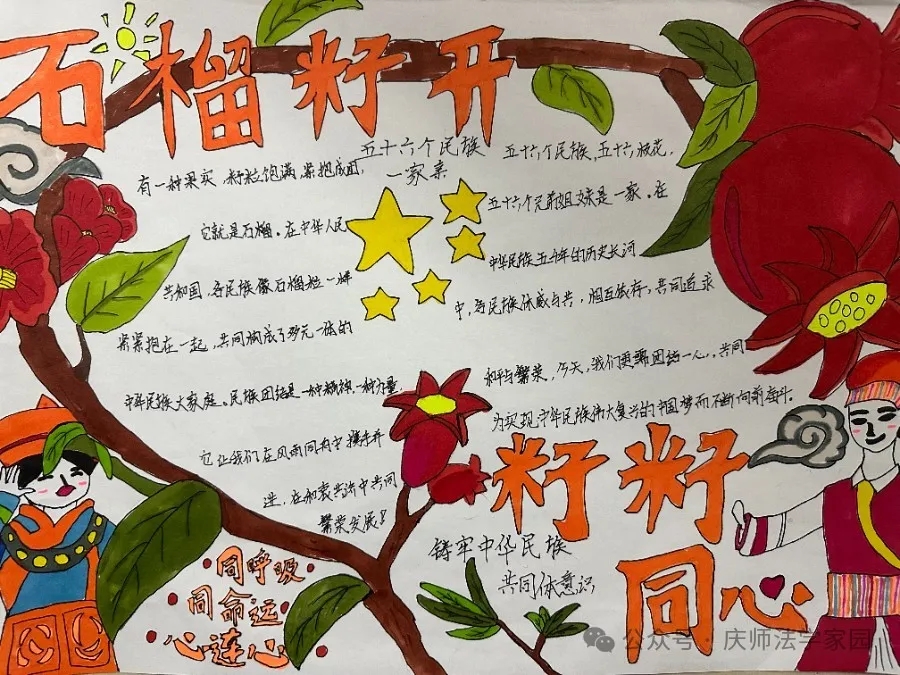 石榴籽开
五十六个民族
一家亲
有一种果实，籽粒饱满，紧抱成团，
它就是石榴。在中华人民
共和国，各民族像石榴粒一样
紧紧抱在一起，共同构成了多元一体的
中华民族大家庭。民族团结是一种精神，一种力量，
它让我们在风雨同舟中携手并
进，在和衷共济中共同
繁荣发展！
五十六个民族，五十六枝花，
五十六个兄弟姐妹是一家。在
中华民族五千年的历史长河
中，各民族休戚与共，相互依存，共同追求
和平与繁荣，今天，我们更需团结一心，共同
为实现中华民族伟大复兴的中国梦而不断向前奋斗。
籽籽
同心
铸牢中华民族
共同体意识
同呼吸
同命运
心连心
公众号·庆师法学家园